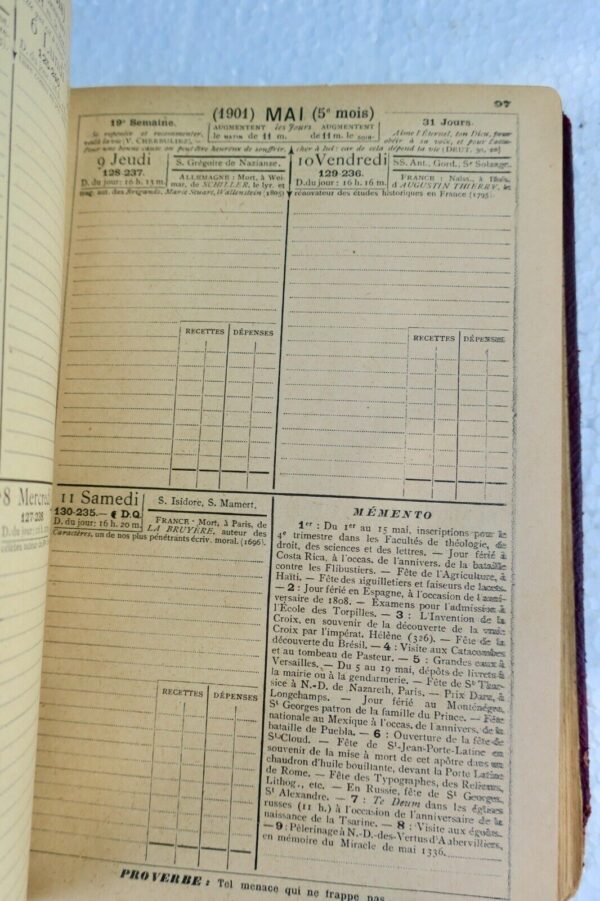 97
(1901) MAI (5e mois)
19e Semaine.
AUGMENTENT les Jours AUGMENTENT
31 Jours.
Se repentir et recommencer,
le MATIN de 11 m. de 11 m. le SOIR
Aime l'Éternel, ton Dieu, pour
voilà la vie (V. CHERBULIEZ).
obéir à sa voix, et pour t'atta-
Pour une bonne cause on peut être heureux de souffrir.
cher à lui: car de cela dépend ta vie (DEUT. 30, 20)
9 Jeudi
128-237.
D. du jour: 16 h. 13 m.
S. Grégoire de Nazianze.
ALLEMAGNE: Mort, à Wei-
mar, de SCHILLER, le lyr. et
trag. aut. des Brigands, Marie Stuart, Wallenstein (1805)
RECETTES DÉPENSES
10 Vendredi
129-236.
D. du jour: 16 h. 16 m.
SS. Ant., Gord., Se Solange.
FRANCE: Naiss., à Blois,
d'AUGUSTIN THIERRY, le
rénovateur des études historiques en France (1795)
RECETTES DÉPENSES
8 Mercredi
127-238
D. du jour
11 Samedi
130-235.— D.Q.
D. du jour: 16 h. 20 m.
S. Isidore, S. Mamert.
FRANCE: Mort, à Paris, de
LA BRUYÈRE, auteur des
Caractères, un de nos plus pénétrants écriv. moral. (1696).
RECETTES DÉPENSES
MÉMENTO
1er: Du 1er au 15 mai, inscriptions pour le
4e trimestre dans les Facultés de théologie, de
droit, des sciences et des lettres. — Jour férié à
Costa Rica, à l'occas. de l'annivers. de la bataille
contre les Flibustiers. — Fête de l'Agriculture, à
Haïti. — Fête des aiguilletiers et faiseurs de lacets.
— 2: Jour férié en Espagne, à l'occasion de l'anni-
versaire de 1808. — Examens pour l'admission à
l'École des Torpilles. — 3: L'Invention de la
Croix, en souvenir de la découverte de la vraie
Croix par l'impérat. Hélène (326). — Fête de la
découverte du Brésil. — 4: Visite aux Catacombes
et au tombeau de Pasteur. — 5: Grandes eaux à
Versailles. — Du 5 au 19 mai, dépôts de livrets à
la mairie ou à la gendarmerie. — Fête de St Thar-
sice à N.-D. de Nazareth, Paris. — Prix Daru, à
Longchamps. — Jour férié au Monténégro,
St Georges patron de la famille du Prince. — Fête
nationale au Mexique à l'occas. de l'annivers. de la
bataille de Puebla. — 6: Ouverture de la fête de
St-Cloud. — Fête de St-Jean-Porte-Latine en
souvenir de la mise à mort de cet apôtre dans un
chaudron d'huile bouillante, devant la Porte Latine
de Rome. — Fête des Typographes, des Relieurs,
Lithog., etc. — En Russie, fête de St Georges,
St Alexandre. — 7: Te Deum dans les églises
russes (11 h.) à l'occasion de l'anniversaire de la
naissance de la Tsarine. — 8: Visite aux égouts.
— 9: Pèlerinage à N.-D.-des-Vertus d'Aubervilliers,
en mémoire du Miracle de mai 1336.
PROVERBE: Tel menace qui ne frappe pas